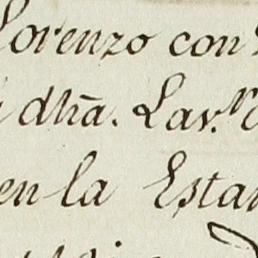 Lorenzo con
dħã. Lav.ⁿ
en la Estan